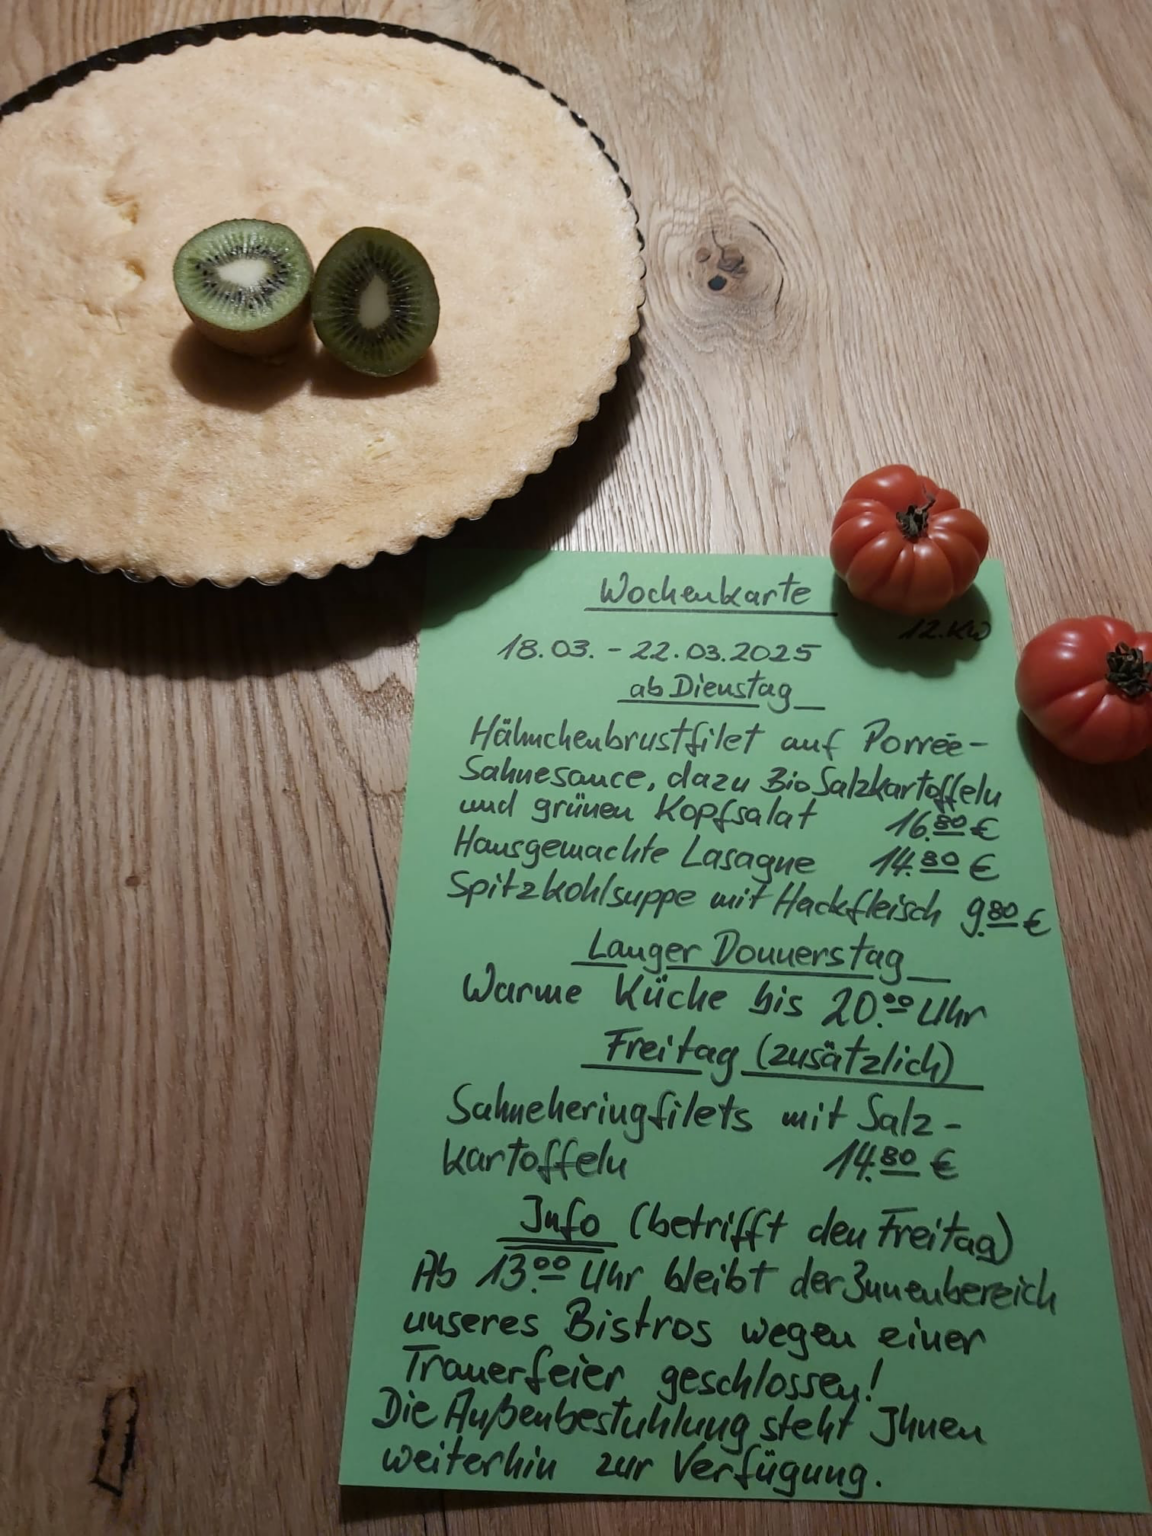 Wochenkarte
12.KW
18.03. - 22.03.2025
ab Dienstag
Hähnchenbrustfilet auf Porrée-
Sahnesauce, dazu Bio Salzkartoffeln
und grünen Kopfsalat 16.80 €
Hausgemachte Lasagne 14.80 €
Spitzkohlsuppe mit Hackfleisch 9.80 €
Langer Donnerstag
Warme Küche bis 20.00 Uhr
Freitag (zusätzlich)
Sahneheringfilets mit Salz-
kartoffeln 14.80 €
Info (betrifft den Freitag)
Ab 13.00 Uhr bleibt der Innenbereich
unseres Bistros wegen einer
Trauerfeier geschlossen!
Die Außenbestuhlung steht Ihnen
weiterhin zur Verfügung.